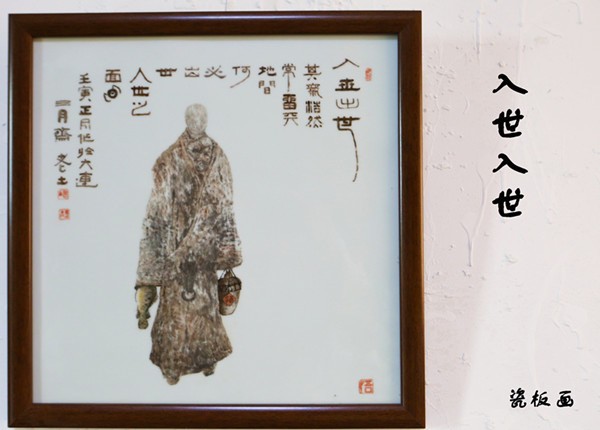 入世出世
其氣浩然
常留天
地間
何
必
出
世
入世之
面目
壬寅正月作於大連
月齋
入世入世
瓷板画